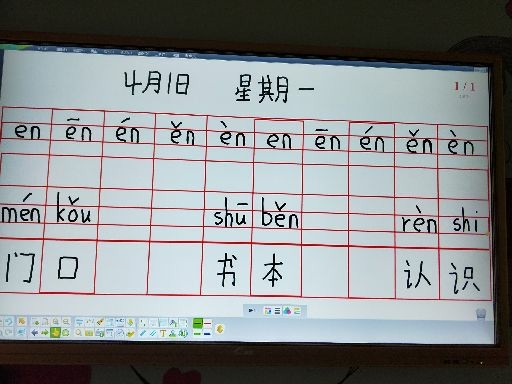 4月1日 星期一
1/1
en ēn én ěn èn en ēn én ěn èn
mén kǒu shū běn rèn shi
门口 书本 认识